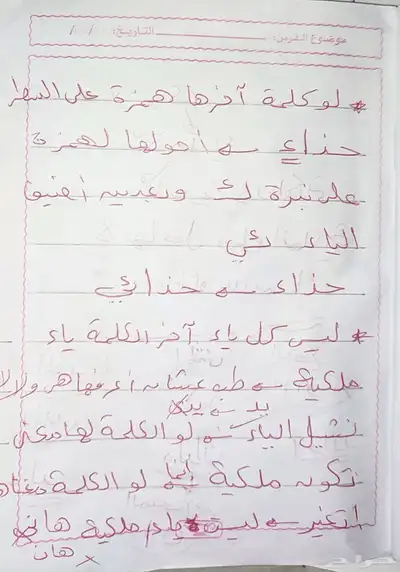 موضوع الدرس: التاريخ: / /
* لو كلمة آخرها همزة على السطر
حذاءٍ ← أحولها لهمزة
على نبرة ئـ وبعدين أضيف
الياء ئي
حذاء ← حذائي
* ليس كل ياء آخر الكلمة ياء
ملكية ← طب عشان أعرفها هي ولا لا
يد ← يدي
نشيل الياء ← لو الكلمة لها معنى
تكون ملكية لو الكلمة معناها
اتغير ← ليست ياء ملكية هاني
هان ×